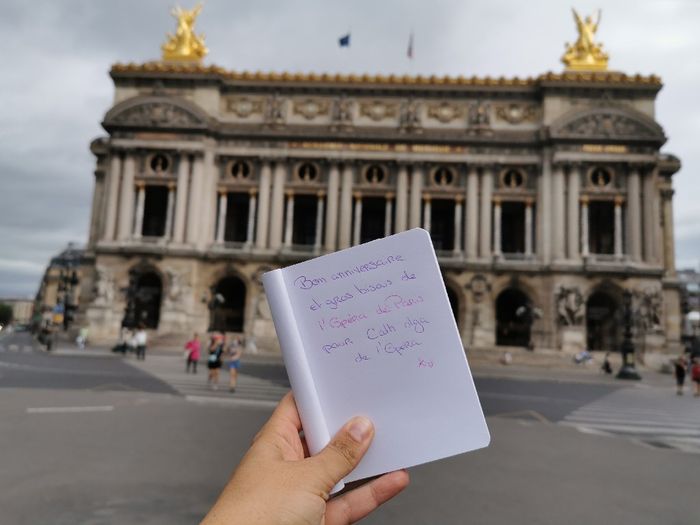 Bon anniversaire
et gros bisous de
l'Opéra de Paris
pour Cath
de l'Opéra